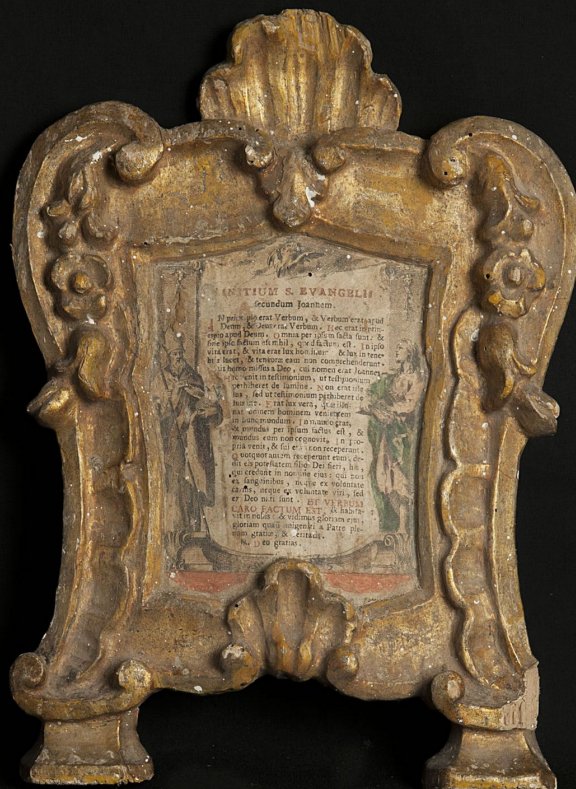 INITIUM S. EVANGELII
secundum Joannem.
IN principio erat Verbum, & Verbum erat apud
Deum, & Deus erat Verbum. Hoc erat in prin-
cipio apud Deum. Omnia per ipsum facta sunt: &
sine ipso factum est nihil, quod factum est. In ipso
vita erat, & vita erat lux hominum: & lux in tene-
bris lucet, & tenebræ eam non comprehenderunt.
uit homo missus a Deo, cui nomen erat Joannes
venit in testimonium, ut testimonium
perhiberet de lumine. Non erat ille
lux, sed ut testimonium perhiberet de
lumine. Erat lux vera, quæ illumi-
nat omnem hominem venientem
in hunc mundum. In mundo erat,
& mundus per ipsum factus est, &
mundus eum non cognovit. In pro-
pria venit, & sui eum non receperunt.
Quotquot autem receperunt eum, de-
dit eis potestatem filios Dei fieri, his,
qui credunt in nomine ejus: qui non
ex sanguinibus, neque ex voluntate
carnis, neque ex voluntate viri, sed
ex Deo nati sunt. ET VERBUM
CARO FACTUM EST, & habita-
vit in nobis: & vidimus gloriam ejus,
gloriam quasi unigeniti a Patre ple-
num gratiæ, & veritatis.
R. Deo gratias.